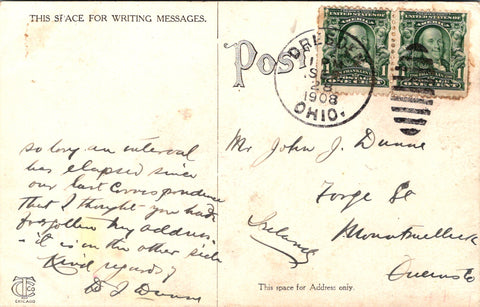 THIS SPACE FOR WRITING MESSAGES.
Post
DRESDEN
SEP
28
1908
OHIO.
UNITED STATES OF AMERICA
FRANKLIN
1
ONE CENT
UNITED STATES OF AMERICA
FRANKLIN
1
ONE CENT
so long an interval
has elapsed since
our last Correspondence
that I thought you had
forgotten my address
- it is on the other side
Kind regards
D J Dunne
Mr John J. Dunne
Forge St
Mountmellick
Queens Co
Ireland
This space for Address only.
CHICAGO